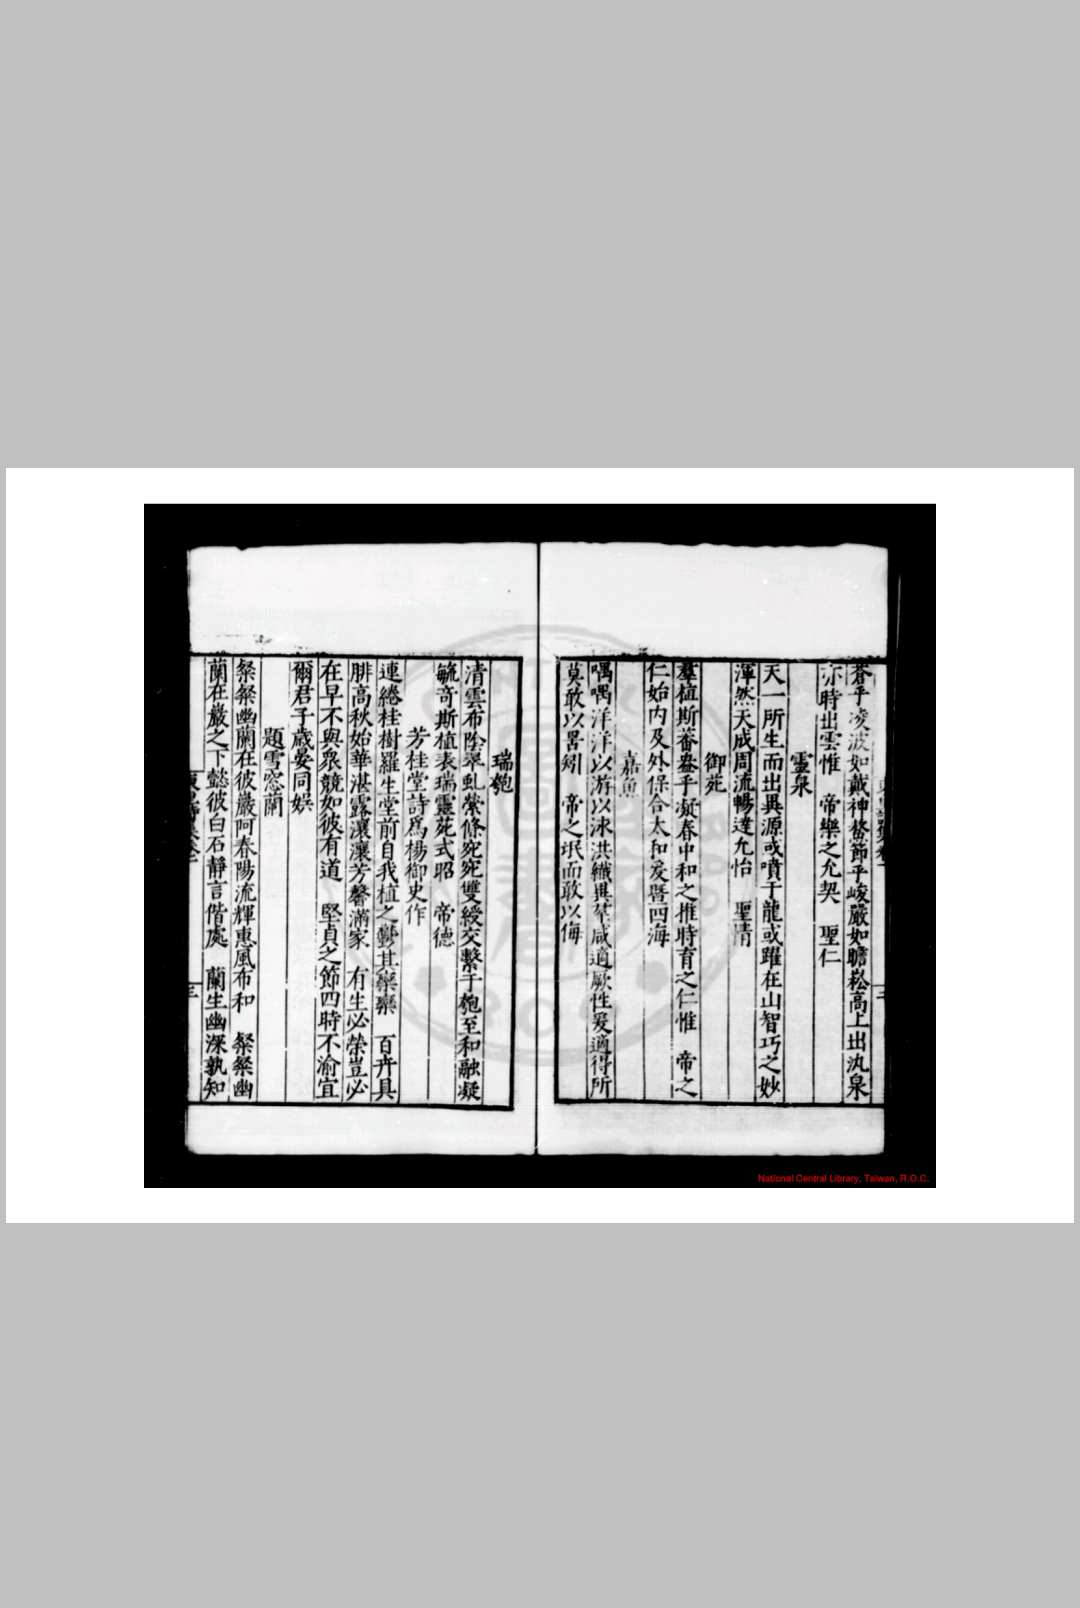 蒼乎凌波如戴神鰲節乎峻嚴如瞻崧高上出氿泉
亦時出雲惟　帝樂之允契　聖仁
靈泉
天一所生而出異源或噴于龍或躍在山智巧之妙
渾然天成周流暢達允怡　聖情
御苑
羣植斯蕃盎乎凝春中和之推時育之仁惟　帝之
仁始内及外保合太和爰曁四海
嘉魚
喁喁洋洋以游以泳洪纎異萃咸適厥性爰適得所
莫敢以罟矧　帝之珉而敢以侮
瑞匏
清雲布陰翠虬縈條宛宛雙綬交繫于匏至和融凝
毓奇斯植表瑞靈苑式昭　帝德
芳桂堂詩爲楊御史作
連綣桂樹羅生堂前自我植之鬱其欒欒　百卉具
腓高秋始華湛露瀼瀼芳馨滿家　有生必榮豈必
在早不與衆競如彼有道　堅貞之節四時不渝宜
爾君子歳晏同娯
題雪窓蘭
粲粲幽蘭在彼巖阿春陽流輝惠風布和　粲粲幽
蘭在巖之下懿彼白石靜言偕處　蘭生幽深孰知
三
National Central Library, Taiwan, R.O.C.